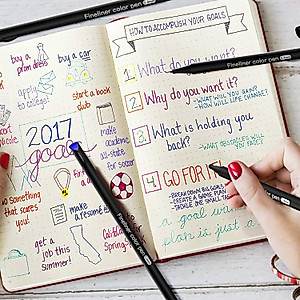 Fineliner color pen
Fineliner color pen
Fineliner color pen
Fineliner color pen
buy a
prom dress
buy a car
apply
to college!
start a
book
club
2017
goals
make
academic
all-state
for
soccer
find
a
do something
that scares
you!
make
a resume
get a
job this
Summer!
Spring
HOW TO ACCOMPLISH YOUR GOALS
1 What do you want?
2 Why do you want it?
-WHAT WILL YOU GAIN?
-HOW WILL LIFE CHANGE?
3 What is holding you
back?
-WHAT OBSTACLES WILL
YOU FACE?
4 GO FOR IT!
-BREAK DOWN BIG GOALS
-CREATE A GAME PLAN
-TACKLE ONE SMALL TASK
a goal
plan is just a